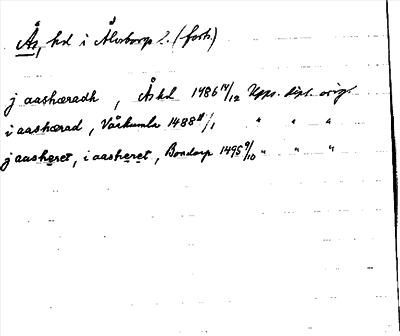 Ås, hd i Älvsborgs l. (forts.)
j aashæradh, Ås hd 1486 14/12 Upps. dipl. orig.
i aashærad, Vårkumla 1488 11/1 " " "
j aasheret, i aasheret, Bondarp 1495 9/10 " " "